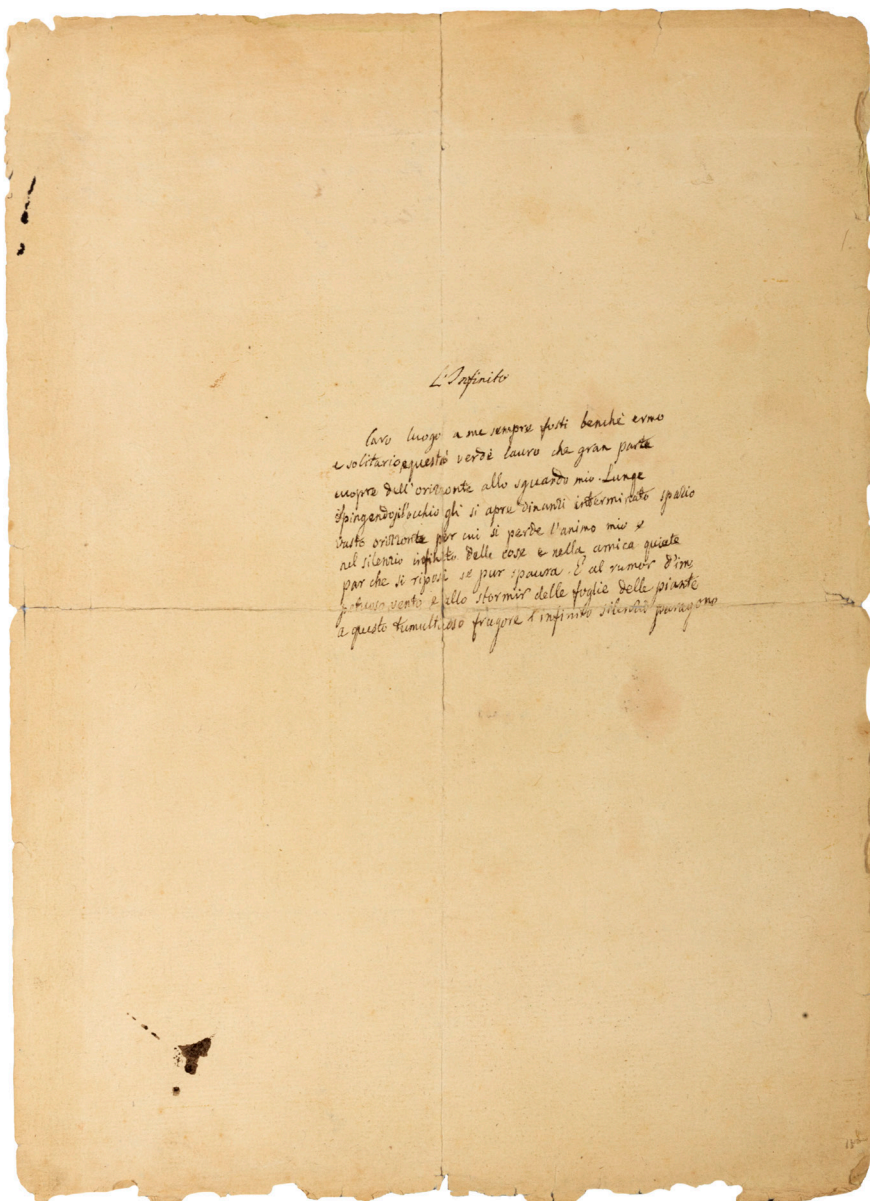 L'Infinito
Caro luogo a me sempre fosti benché ermo
e solitario, e questo verde lauro che gran parte
cuopre dell'orizzonte allo sguardo mio. Lunge
spingendosi l'occhio gli si apre dinanzi interminato spazio
vasto orizzonte per cui si perde l'animo mio e
nel silenzio infinito delle cose e nella amica quiete
par che si riposi se pur spaura. E al rumor d'im
petuoso vento e allo stormir delle foglie delle piante
a questo tumultuoso fragore l'infinito silenzio paragono